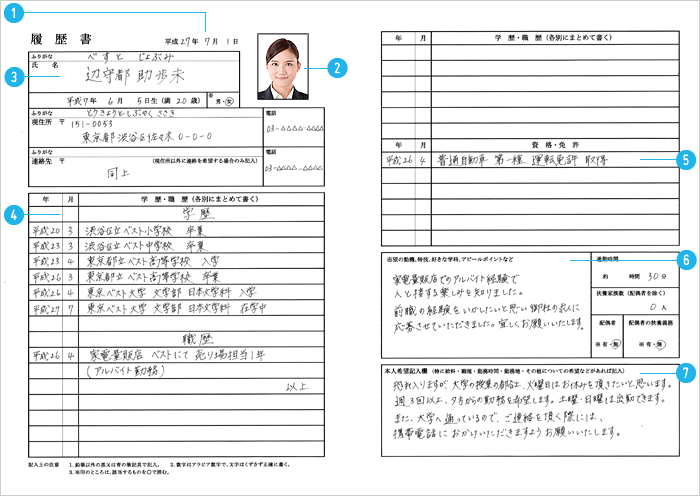 1
履歴書
平成27年 7月 1日
ふりがな べすと じょぶみ
氏 名
3
辺守都 助歩未
2
平成7年 6月 5日生 (満 20歳)
※
男・女
ふりがな とうきょうと しぶやく ささき
電話
現住所 〒
151-0053
03-△△△△-△△△△
東京都 渋谷区佐々木 0-0-0
ふりがな
電話
連絡先 〒
(現住所以外に連絡を希望する場合のみ記入)
同上
03-△△△△-△△△△
4
年 月 学 歴・職 歴 (各別にまとめて書く)
学 歴
平成20 3 渋谷区立ベスト小学校 卒業
平成23 3 渋谷区立ベスト中学校 卒業
平成23 4 東京都立ベスト高等学校 入学
平成26 3 東京都立ベスト高等学校 卒業
平成26 4 東京ベスト大学 文学部 日本文学科 入学
平成27 7 東京ベスト大学 文学部 日本文学科 在学中
職 歴
平成26 4 家電量販店 ベストにて 売り場担当1年
(アルバイト勤務)
以上
記入上の注意 1.鉛筆以外の黒又は青の筆記具で記入。 2.数字はアラビア数字で、文字はくずさず正確に書く。
3.※印のところは、該当するものを○で囲む。
年 月 学 歴・職 歴 (各別にまとめて書く)
年 月 資 格・免 許
平成26 4 普通自動車 第一種 運転免許 取得
5
志望の動機、特技、好きな学科、アピールポイントなど
6
通勤時間
約 時間 30分
家電量販店でのアルバイト経験で
人と接する楽しみを知りました。
前職の経験をいかしたいと思い 御社の求人に
応募させていただきました。宜しくお願いいたします。
扶養家族数 (配偶者を除く)
0 人
配偶者 配偶者の扶養義務
※有・無 ※有・無
本人希望記入欄 (特に給料・職種・勤務時間・勤務地・その他についての希望などがあれば記入)
7
恐れ入りますが、大学の授業の都合上、火曜日はお休みを頂きたいと思います。
週3回以上、夕方からの勤務を希望します。土曜・日曜は出勤できます。
また、大学へ通っているので、ご連絡を頂く際には、
携帯電話に おかけいただきますよう お願いいたします。